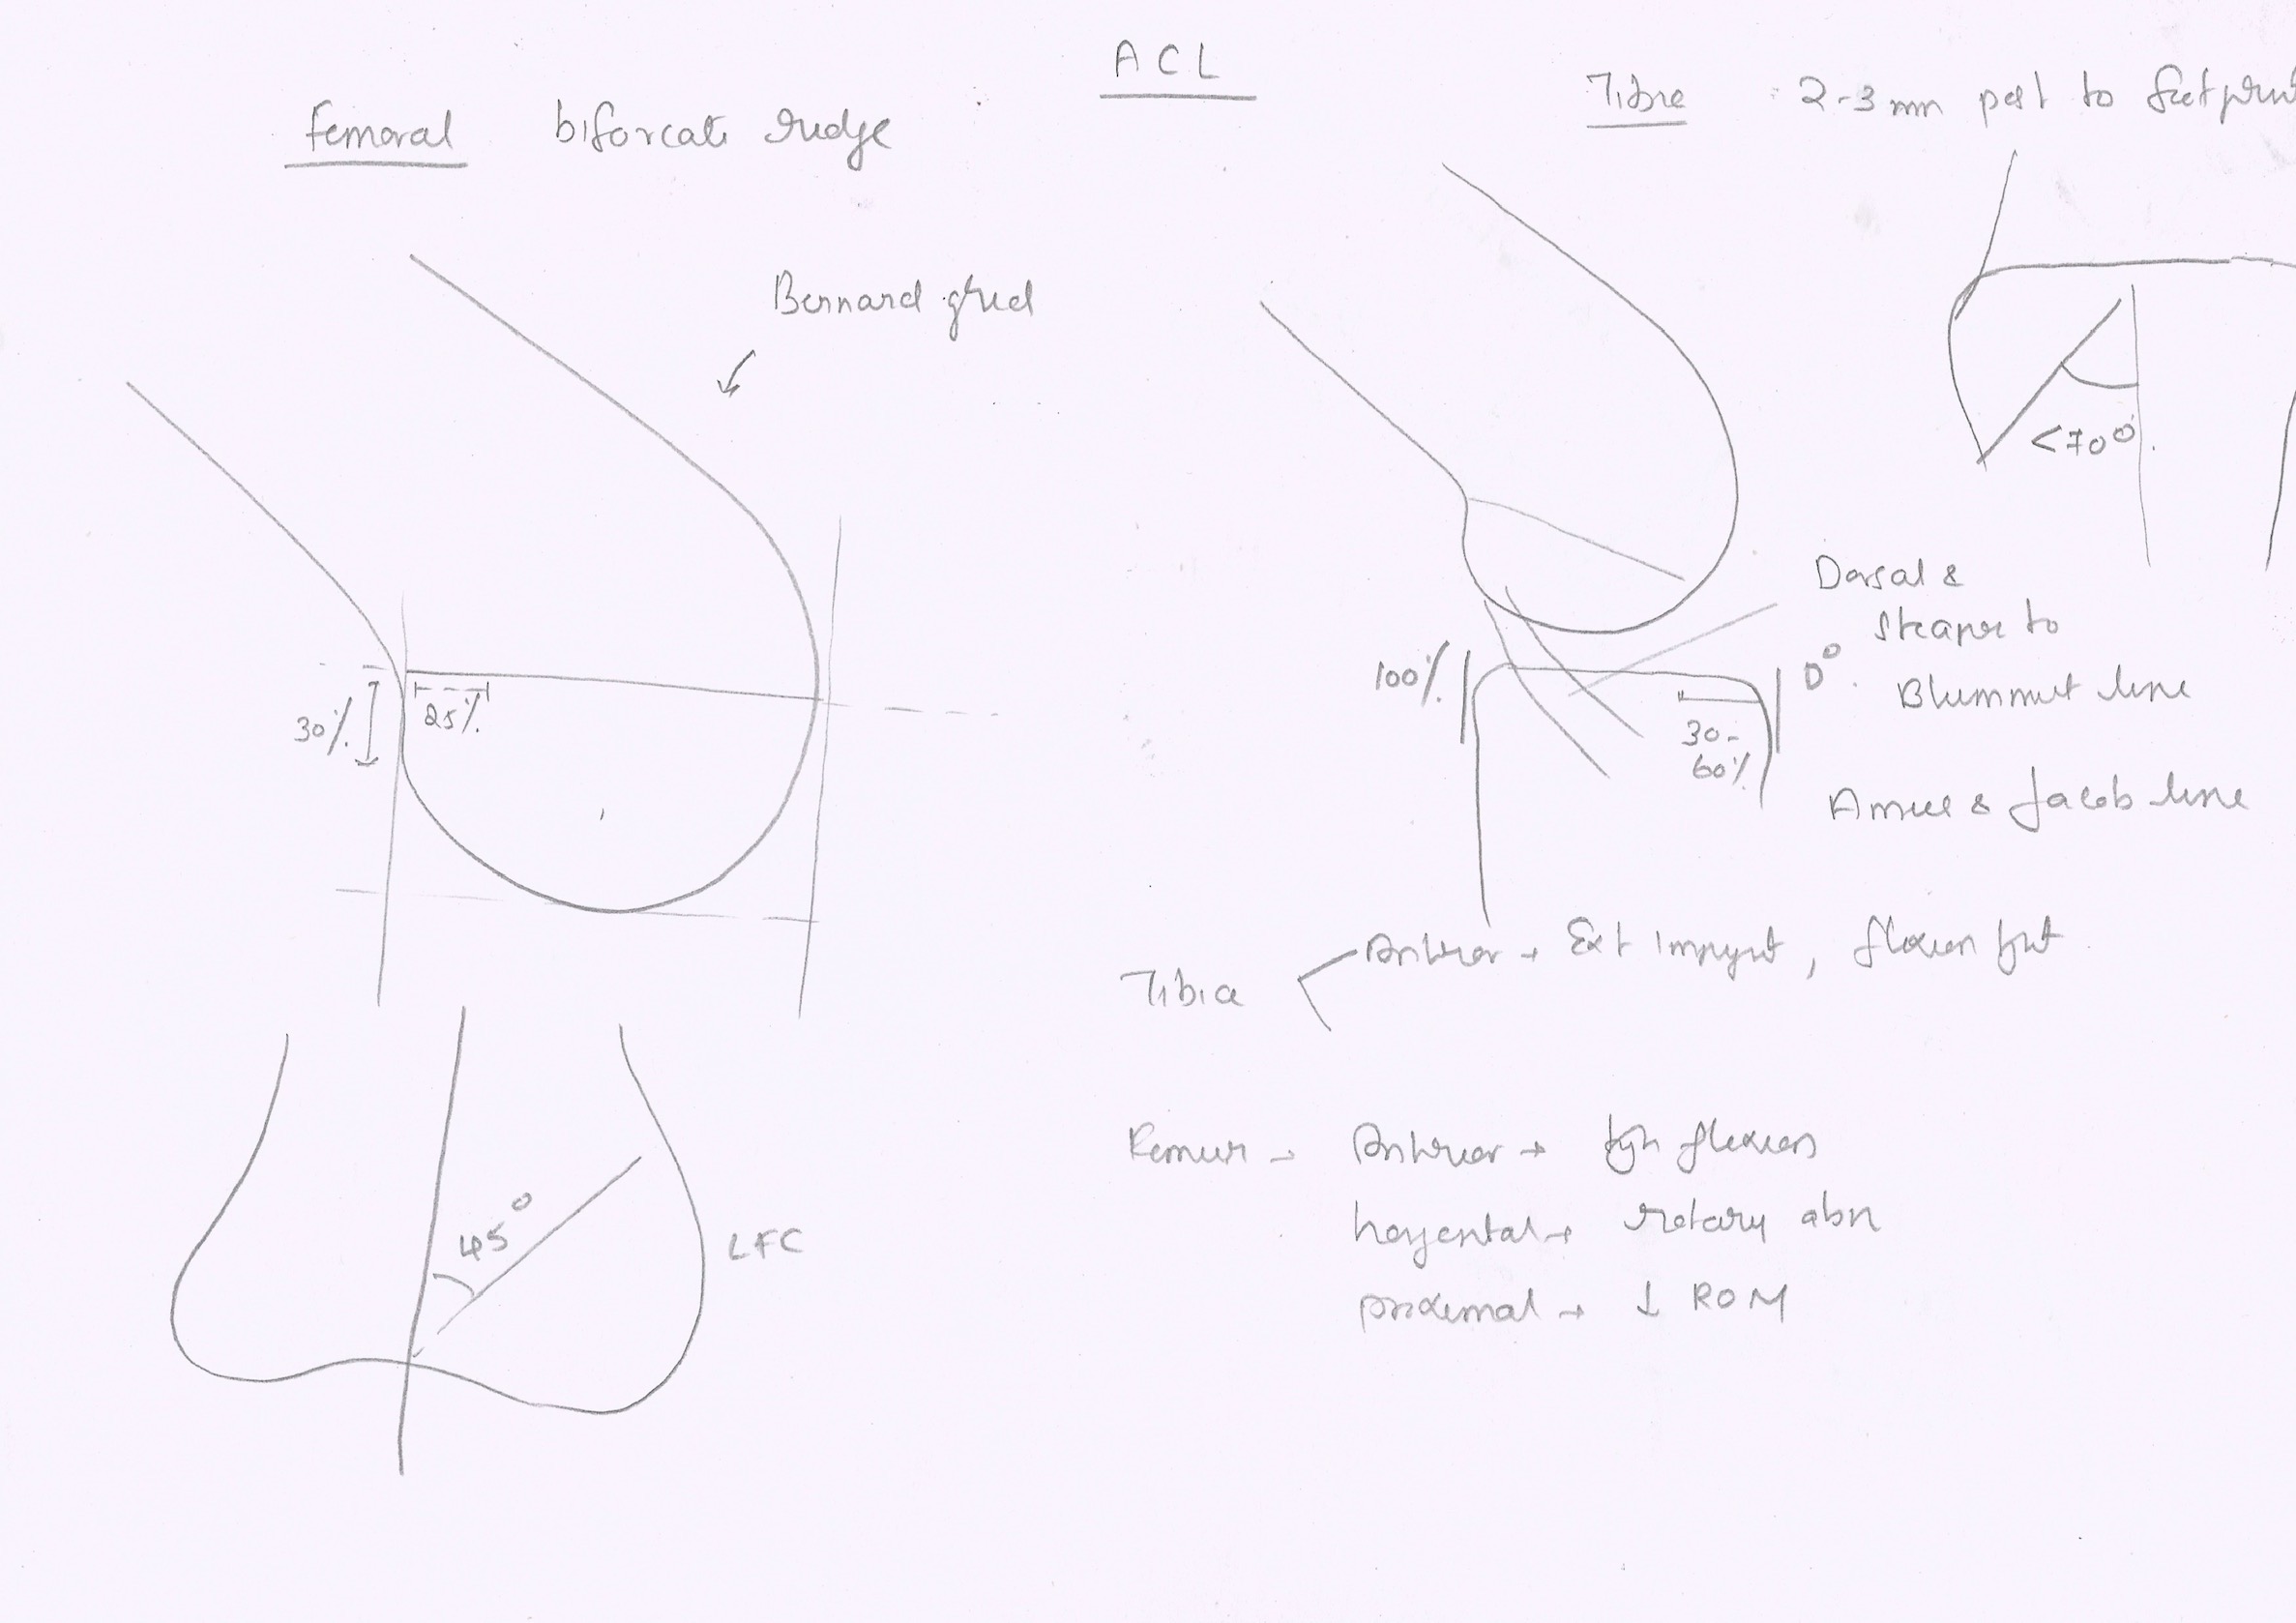 ACL
Femoral biforcate ridge
Bernard grid
30%
25%
45°
LFC
Tibia : 2-3 mm post to footprint
<70°
Dorsal &
Steaper to
Blummut line
100%
0°
30-
60%
Amis & Jacob line
Tibia
Anterior → Ext Impgt, flexion
Femur → Anterior → flexion
horizontal → rotary abn
proximal → ↓ ROM